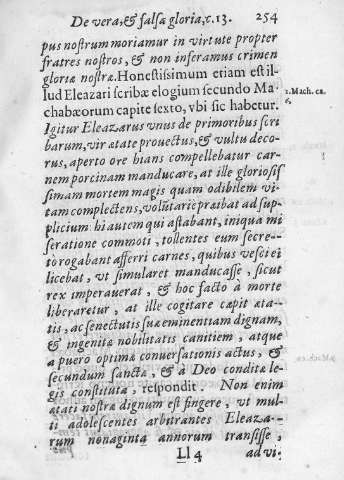 De vera, & falsa gloria, c. 13. 254
pus nostrum moriamur in virtute propter
fratres nostros, & non inferamus crimen
gloriæ nostræ. Honestissimum etiam est il-
lud Eleazari scribæ elogium secundo Ma-
chabæorum capite sexto, vbi sic habetur.
2. Mach. ca.
6.
Igitur Eleazarus vnus de primoribus scri
barum, vir ætate prouectus, & vultu deco-
rus, aperto ore hians compellebatur car-
nem porcinam manducare, at ille gloriosis
simam mortem magis quam odibilem vi-
tam complectens, volũtarie præibat ad sup-
plicium: hi autem qui astabant, iniqua mi
seratione commoti, tollentes eum secre-
tò rogabant afferri carnes, quibus vesci ei
licebat, vt simularet manducasse, sicut
rex imperauerat, & hoc facto à morte
liberaretur, at ille cogitare cœpit æta-
tis, ac senectutis suæ eminentiam dignam,
& ingenitæ nobilitatis canitiem, atque
a puero optimæ conuersationis actus, &
secundum sanctæ, & à Deo conditæ le-
gis constituta, respondit. Non enim
ætati nostræ dignum est fingere, vt mul-
ti adolescentes arbitrantes Eleaza-
rum nonaginta annorum transisse,
Ll 4 ad vi-